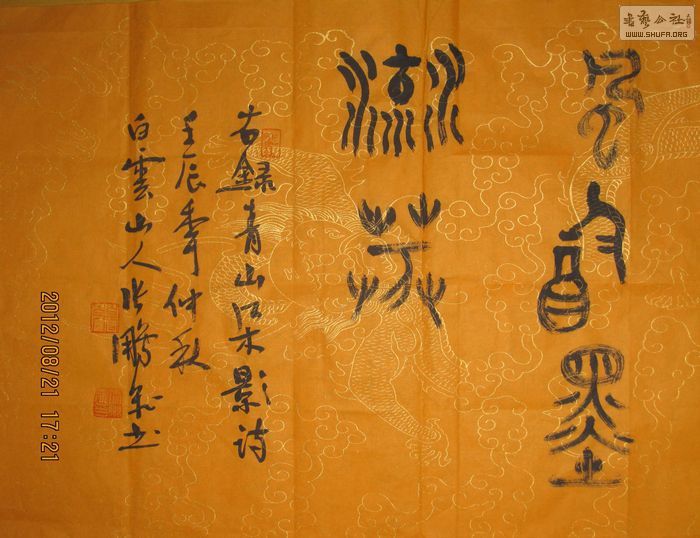 書藝公社
WWW.SHUFA.ORG
墨
流芳
右録青山梁影詩
壬辰季仲秋
白雲山人张鵬
2012/08/21 17:21